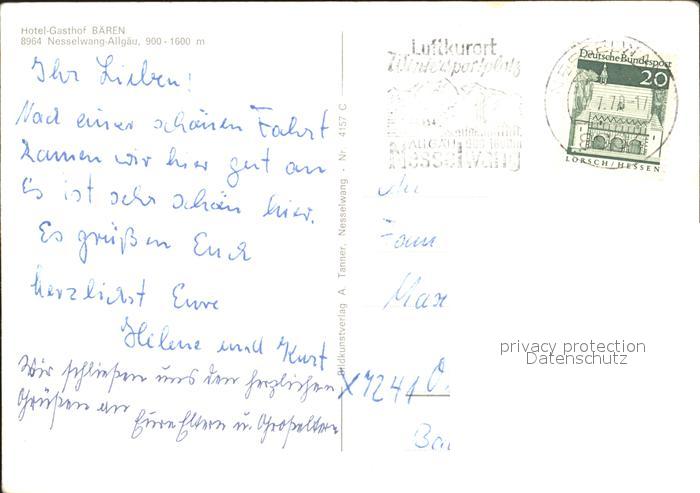 Hotel-Gasthof BÄREN
8964 Nesselwang-Allgäu, 900-1600 m
Ihr Lieben!
Nach einer schönen Fahrt
kamen wir hier gut an
Es ist sehr schön hier.
Es grüßen Euch
herzlichst Eure
Helene und Kurt
Wir schließen uns den herzlichen
Grüßen an
Eure Eltern u. Großeltern
Bildkunstverlag A. Tanner, Nesselwang - Nr. 4157 C
Luftkurort
Wintersportplatz
ALLGÄU 900-1600m
Nesselwang
Deutsche Bundespost
20
LORSCH/HESSEN
An
Fam
Max
X7241
privacy protection
Datenschutz